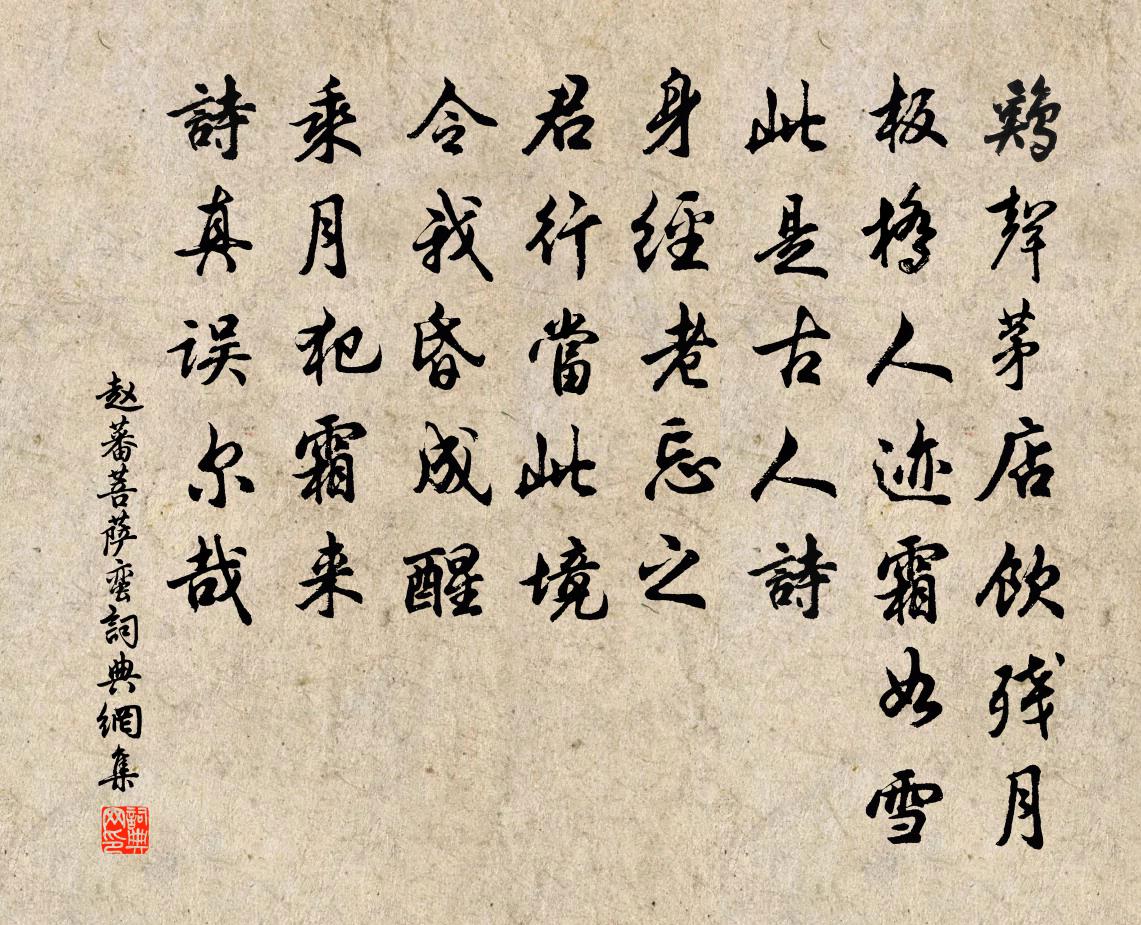 鷄聲茅店飲残月
板橋人迹霜如雪
此是古人詩
身經老忘之
君行當此境
令我昏成醒
乘月犯霜来
詩真误尔哉
赵蕃菩萨蛮詞典網集
詞典網印